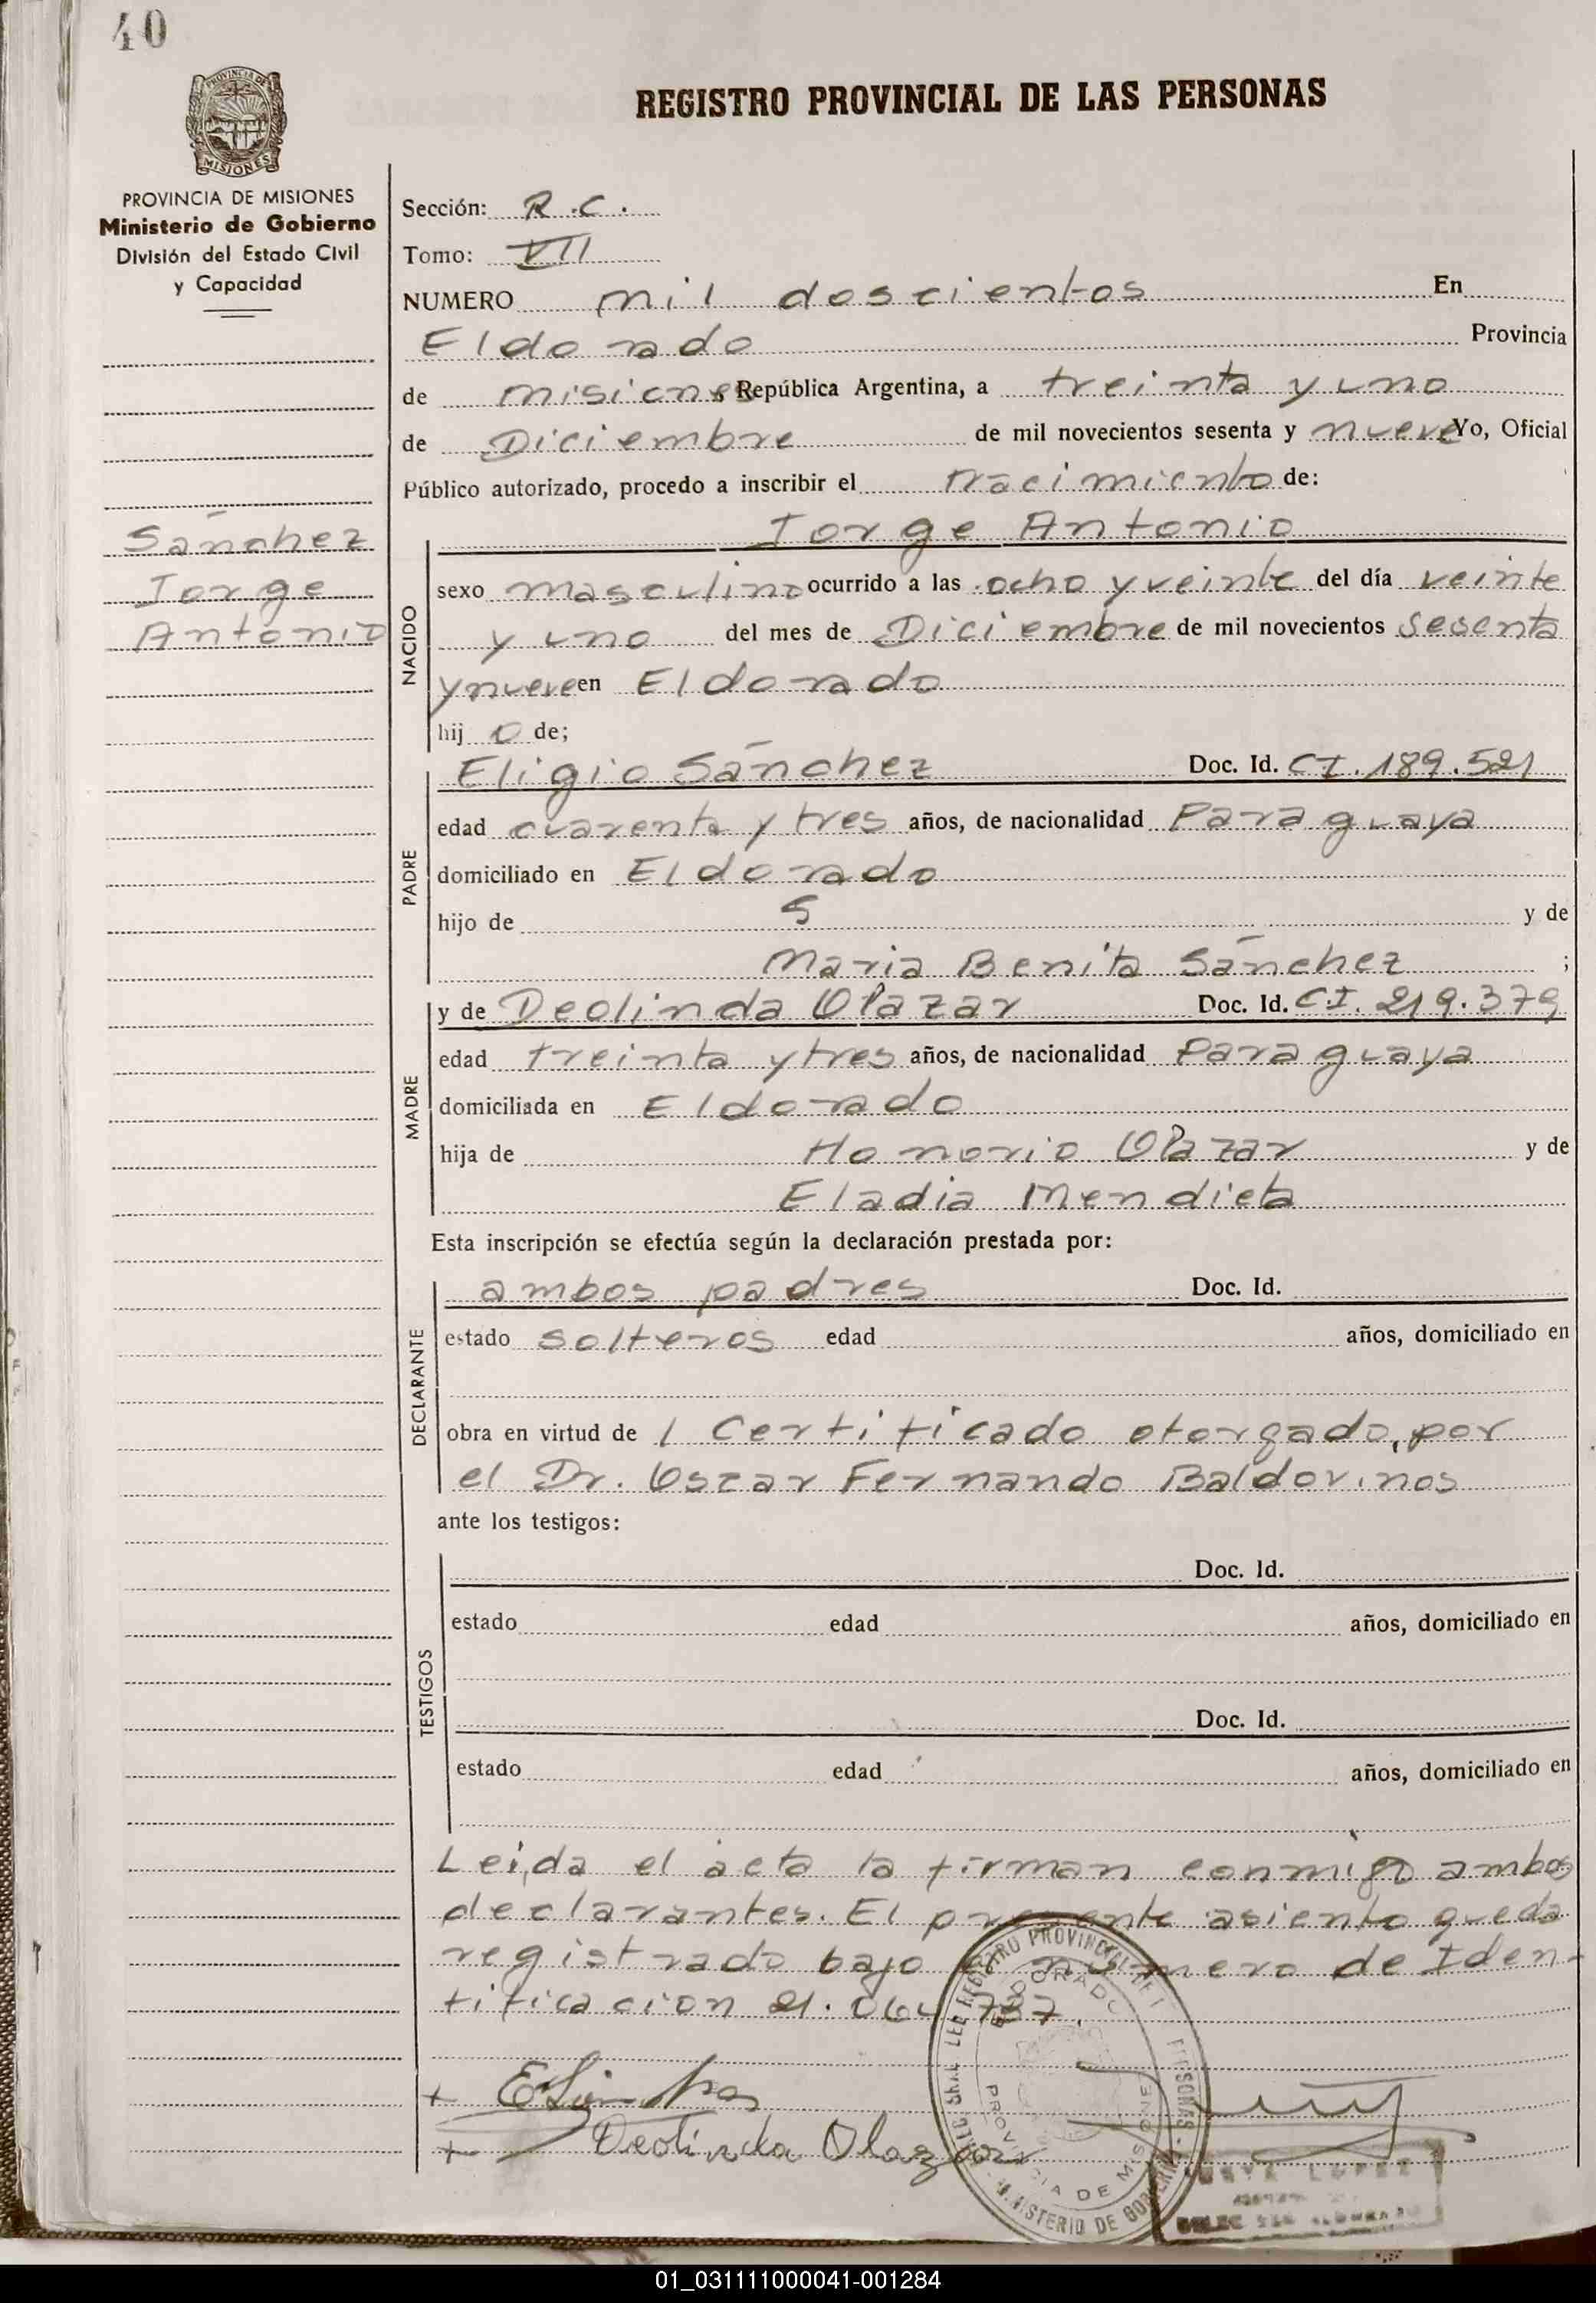 40
PROVINCIA DE MISIONES
MISIONES
PROVINCIA DE MISIONES
Ministerio de Gobierno
División del Estado Civil
y Capacidad
Sánchez
Jorge
Antonio
REGISTRO PROVINCIAL DE LAS PERSONAS
Sección: R.C.
Tomo: VII
NUMERO mil doscientos En
Eldorado Provincia
de misiones República Argentina, a treinta y uno
de Diciembre de mil novecientos sesenta y nueve Yo, Oficial
Público autorizado, procedo a inscribir el nacimiento de:
Jorge Antonio
NACIDO
sexo masculino ocurrido a las ocho y veinte del día veinte
y uno del mes de Diciembre de mil novecientos sesenta
y nueve en Eldorado
hij o de;
PADRE
Eligio Sánchez Doc. Id. C.I. 189.521
edad cuarenta y tres años, de nacionalidad Paraguaya
domiciliado en Eldorado
hijo de S y de
Maria Benita Sánchez ;
MADRE
y de Deolinda Olazar Doc. Id. C.I. 219.379
edad treinta y tres años, de nacionalidad Paraguaya
domiciliada en Eldorado
hija de Honorio Olazar y de
Eladia Mendieta
Esta inscripción se efectúa según la declaración prestada por:
DECLARANTE
ambos padres Doc. Id.
estado solteros edad años, domiciliado en
obra en virtud de 1 Certificado otorgado, por
el Dr. Oscar Fernando Baldovinos
ante los testigos:
TESTIGOS
Doc. Id.
estado edad años, domiciliado en
Doc. Id.
estado edad años, domiciliado en
Leida el acta la firman conmigo ambos
declarantes. El presente asiento queda
registrado bajo el número de Iden-
tificacion 21.064.737.
+
+ Deolinda Olazar
REGISTRO PROVINCIAL
ELDORADO
PROVINCIA DE MISIONES
MINISTERIO DE GOBIERNO
LOPEZ
01_031111000041-001284